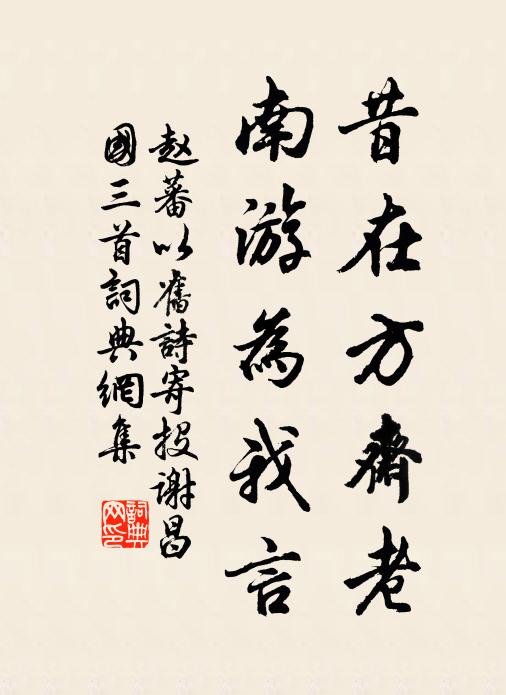 昔在方齋老
南游為我言
赵蕃以舊詩寄投謝昌
國三首詞典網集
詞典
网印